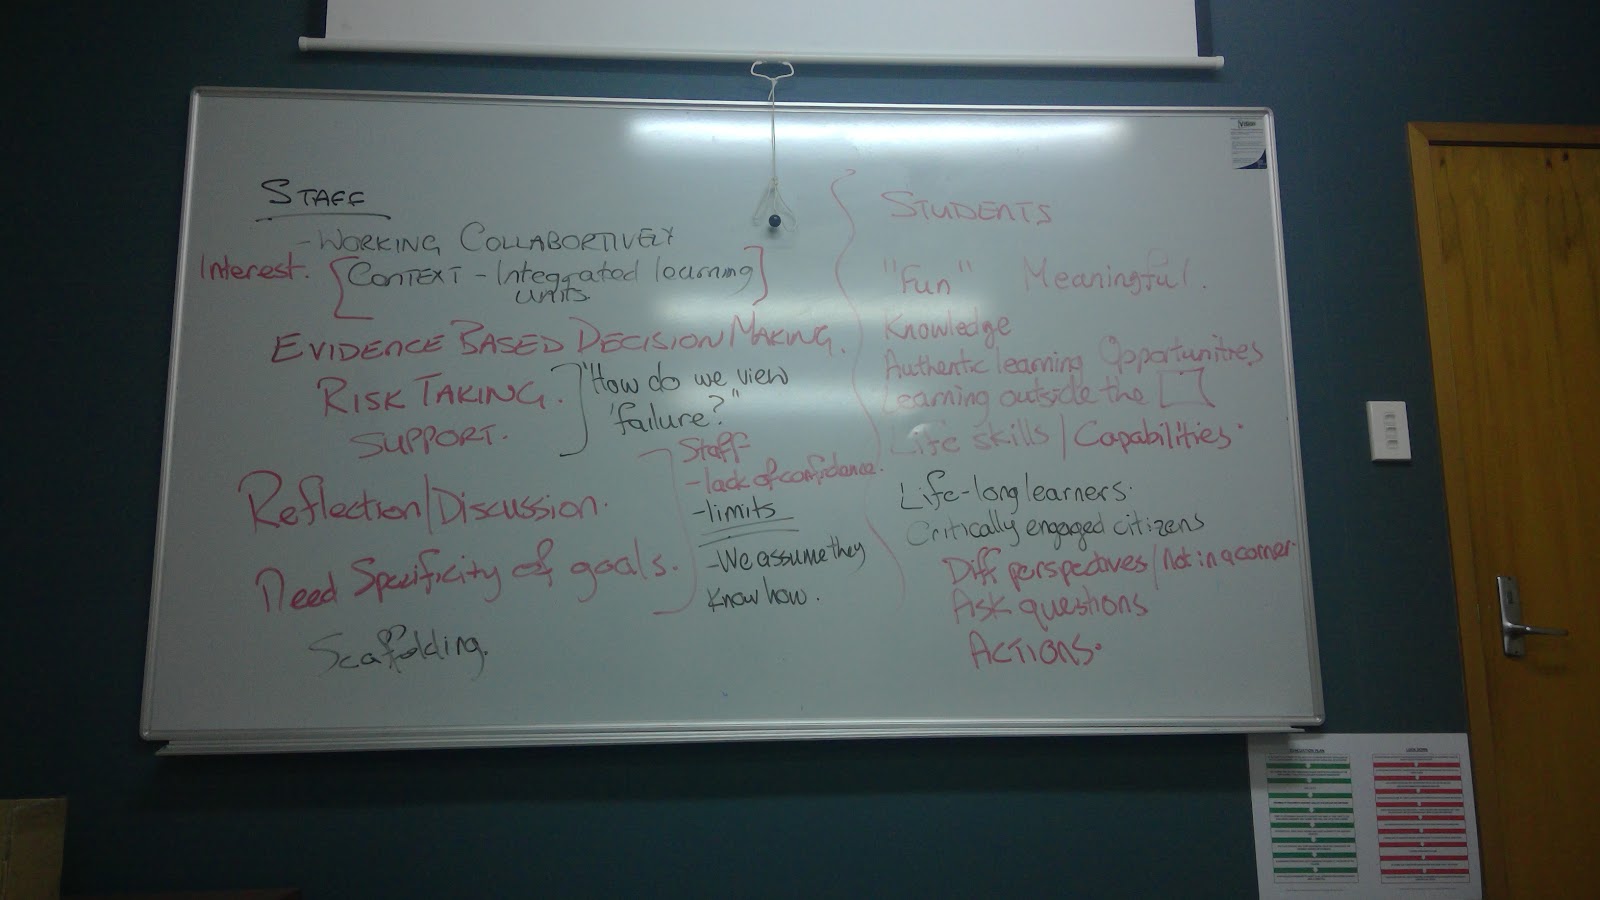 STAFF
- WORKING COLLABORTIVELY
Interest. [CONTEXT - Integrated learning]
units.
EVIDENCE BASED DECISION MAKING.
RISK TAKING.
SUPPORT.
"How do we view
'failure?"
Reflection/Discussion.
Need Specificity of goals.
Scaffolding.
Staff
- lack of confidence.
- limits
- We assume they
know how.
STUDENTS
"Fun" Meaningful.
Knowledge
Authentic learning Opportunities
Learning outside the
Life skills / Capabilities.
Life-long learners.
Critically engaged citizens
Diff perspectives / Not in a corner.
Ask questions
ACTIONS.
EVACUATION PLAN
LOCKDOWN